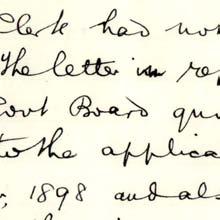 Clerk had not
The letter in re
Govt Board qui
to the applica
, 1898 and al